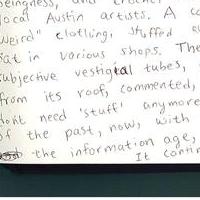 beingness, and
local Austin artists. A
weird" clothing, stuffed
sat in various shops. The
subjective vestigial tubes,
from its roof, commented,
dont need 'stuff' anymore
of the past, now, with
the information age,
It